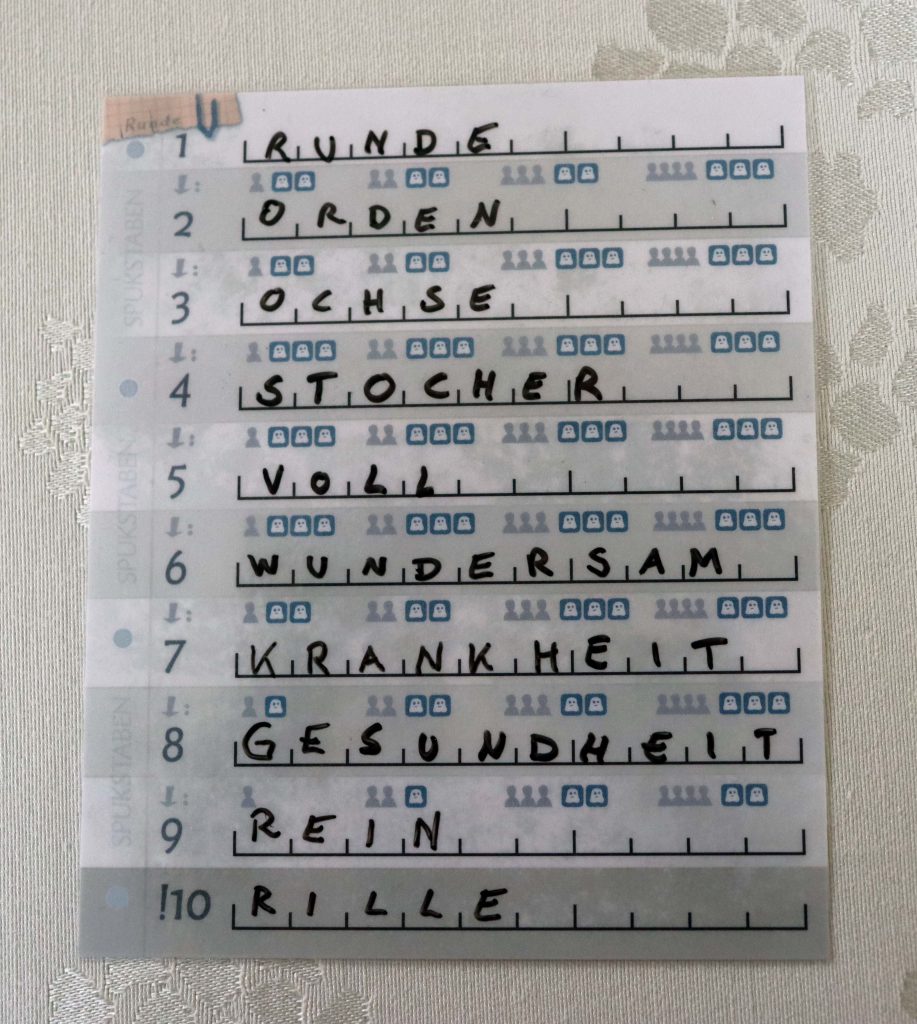 Runde
1 RUNDE
2 ORDEN
3 OCHSE
4 STOCHER
5 VOLL
6 WUNDERSAM
7 KRANKHEIT
8 GESUNDHEIT
9 REIN
!10 RILLE
SPUKSTABEN
SPUKSTABEN
SPUKSTABEN